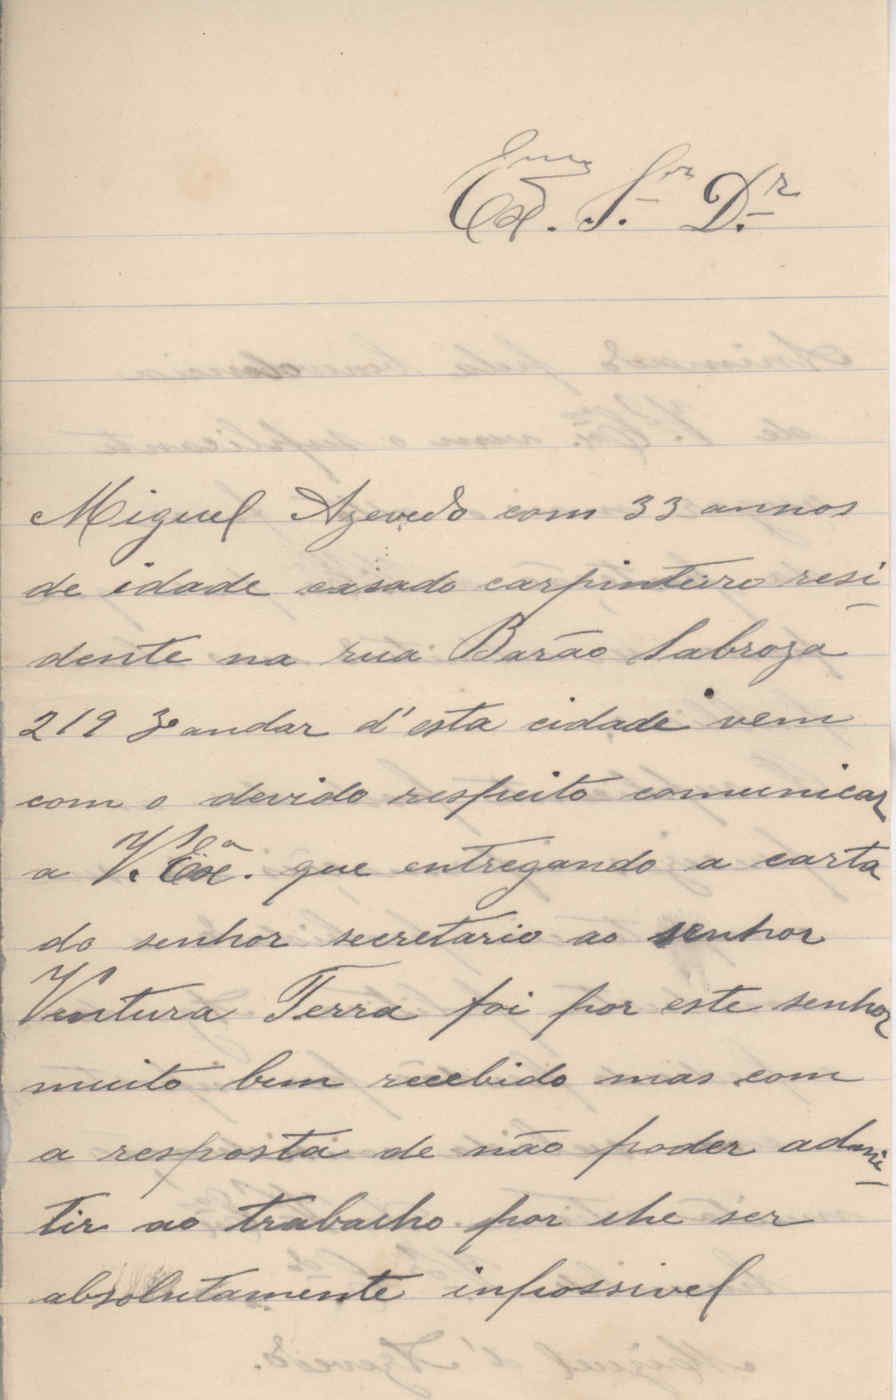 Exmo. Sr. Dr.
Miguel Azevedo com 33 annos
de idade casado carpinteiro resi-
dente na rua Barão Sabroza
219 3o andar d'esta cidade vem
com o devido respeito comunicar
a V. Exa. que entregando a carta
do senhor secretario ao senhor
Ventura Terra foi por este senhor
muito bem recebido mas com
a resposta de não poder admi-
tir ao trabalho por lhe ser
absolutamente inpossivel